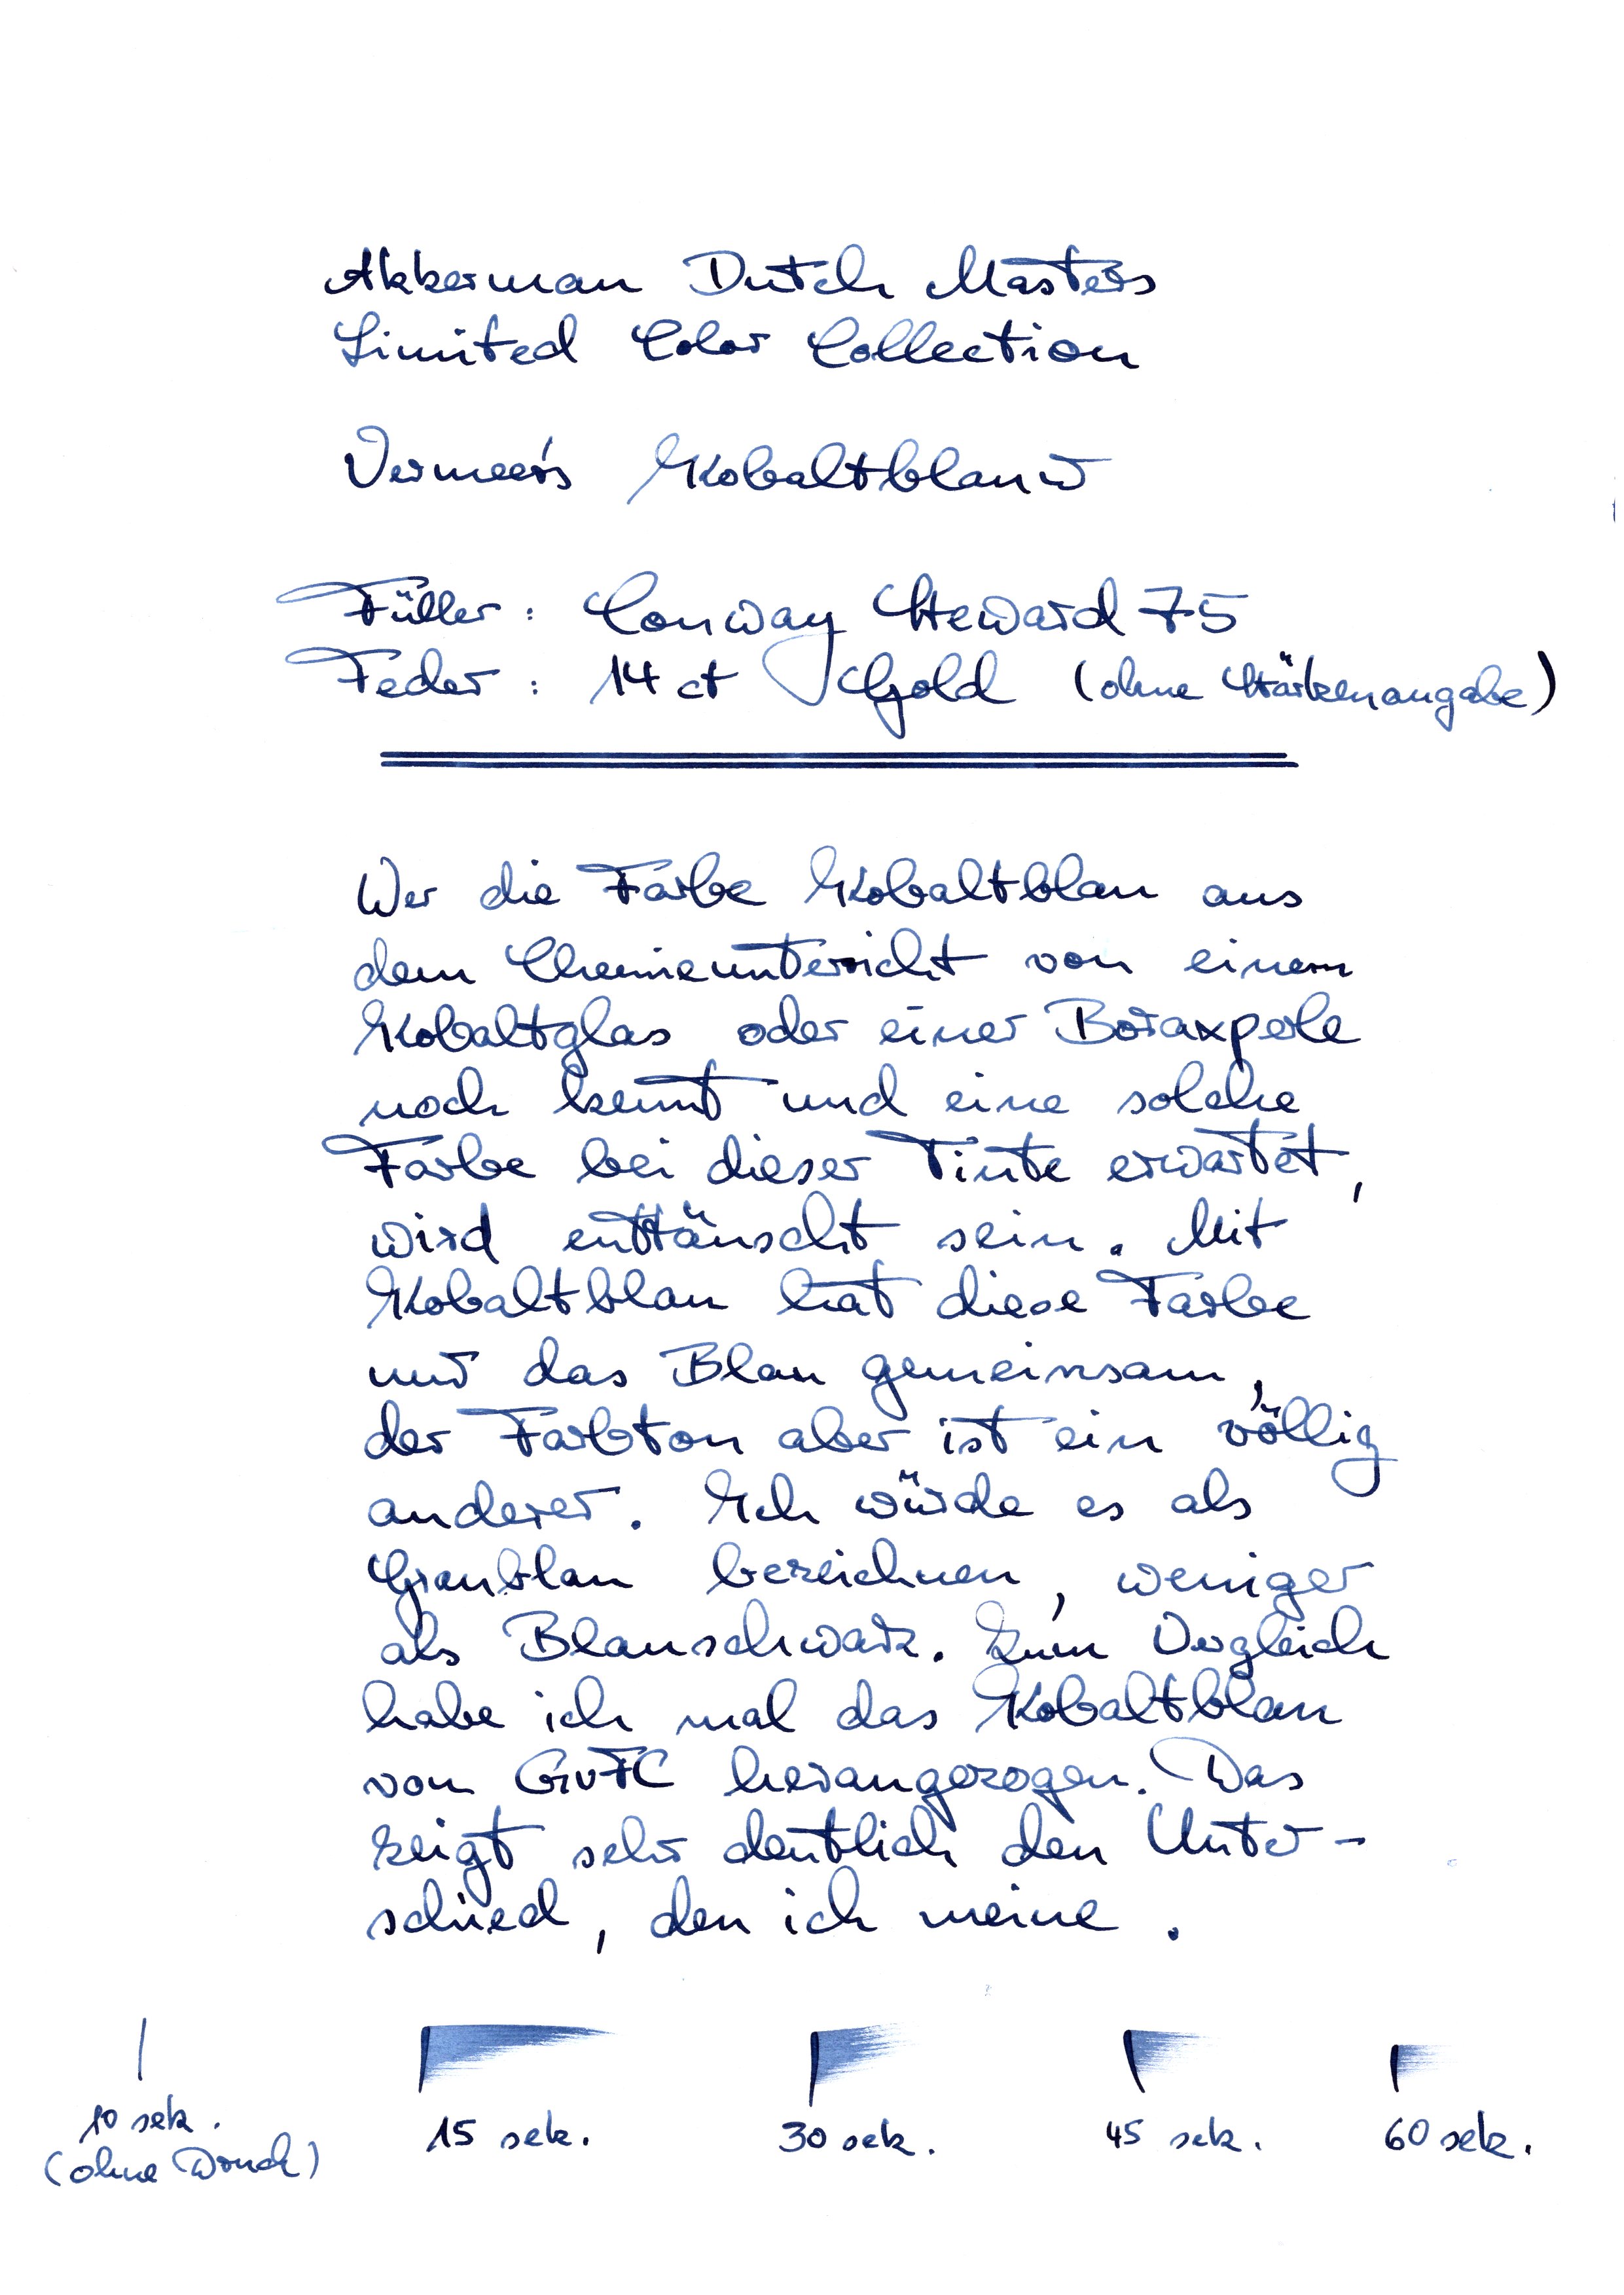 Akkerman Dutch Masters
Limited Color Collection
Vermeer's Kobaltblauw
Füller : Conway Steward 75
Feder : 14 ct Gold (ohne Stärkenangabe)
Wer die Farbe Kobaltblau aus
dem Chemieunterricht von einem
Kobaltglas oder einer Boraxperle
noch kennt und eine solche
Farbe bei dieser Tinte erwartet,
wird enttäuscht sein. Mit
Kobaltblau hat diese Farbe
nur das Blau gemeinsam,
der Farbton aber ist ein völlig
anderer. Ich würde es als
Graublau bezeichnen, weniger
als Blauschwarz. Zum Vergleich
habe ich mal das Kobaltblau
von GvFC herangezogen. Das
zeigt sehr deutlich den Unter-
schied, den ich meine.
10 sek. 15 sek. 30 sek. 45 sek. 60 sek.
(ohne Druck)